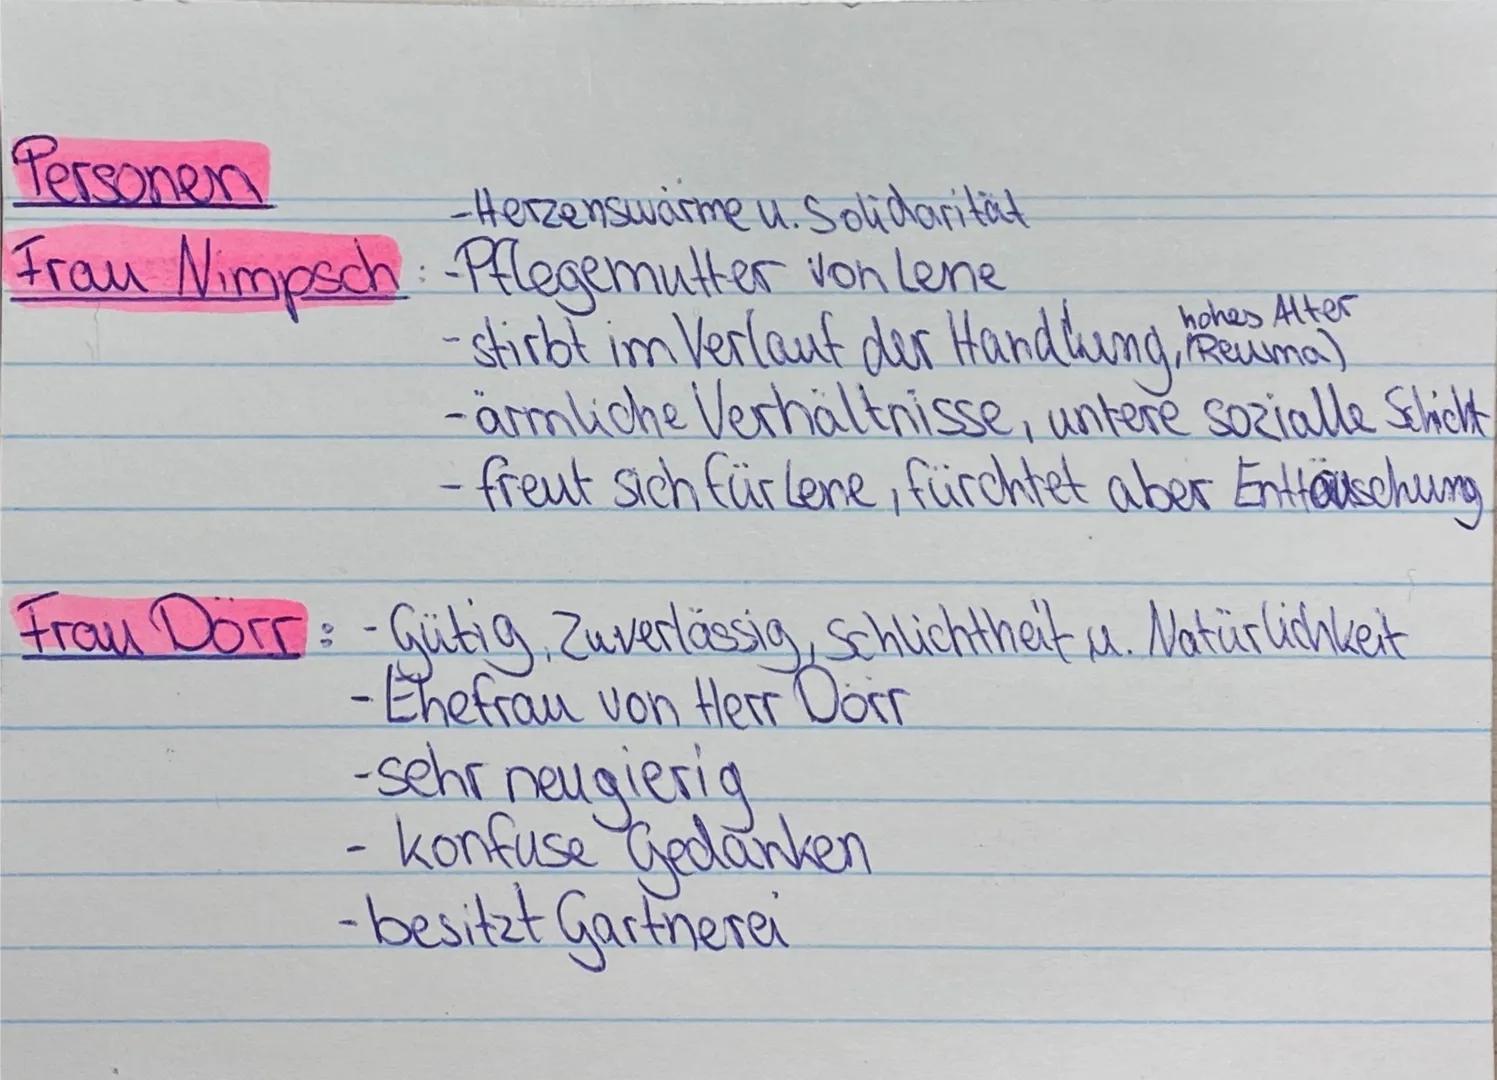 Personen
-Herzenswärme u. Solidarität
Frau Nimpsch: -Pflegemutter von Lene
-stirbt im Verlauf der Handlung, hohes Alter (Reuma)
-ärmliche Verhältnisse, untere sozialle Schicht
-freut sich für Lene, fürchtet aber Enttäuschung
Frau Dörr: -Gütig, Zuverlässig, Schlichtheit u. Natürlichkeit
-Ehefrau von Herr Dörr
-sehr neugierig
- konfuse Gedanken
-besitzt Gärtnerei